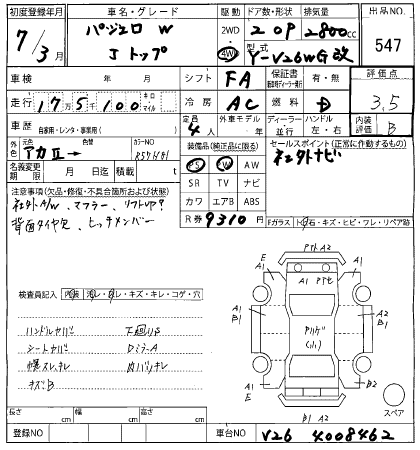 初度登録年月 車名・グレード 駆動 ドア数・形状 排気量 出品NO.
7/3月 パジェロ W Jトップ 2WD 4WD 2 DP 2800cc 547
型式 Y-V26WG改
車検 年 月 シフト FA 保証書 有・無 評価点
走行 17万5千100 キロ マイル 冷房 AC 燃料 D 3.5
車歴 自家用・レンタ・事業用( ) 定員 4人 外車モデル 年 ディーラー 並行 ハンドル 左・右 内装評価 B
外色 元色 アカII→ 色替 カラーNO 装備品(純正品に限る) セールスポイント(正常に作動するもの)
名義変更期限 月 日迄 積載 t PS PW AW 社外ナビ
SR TV ナビ
注意事項(欠品・修復・不具合箇所および状態) カワ エアB ABS
社外A/W、マフラー、リフトUP?
背面タイヤ欠、ヒッチメンバー
R券 9310円
Fガラス トビ石・キズ・ヒビ・ワレ・リペア跡
検査員記入 内装 汚レ・ヨレ・キズ・キレ・コゲ・穴
ハンドルヤバ 下廻リサ
シートヤバ DミラーA
幌スレ、キレ 内バリキレ
キズB
E A1 A1 A1 A2 B1 A1 E B1 A2 B2
スペア
長さ cm 幅 cm 高さ cm
登録NO 車台NO V26 4008462